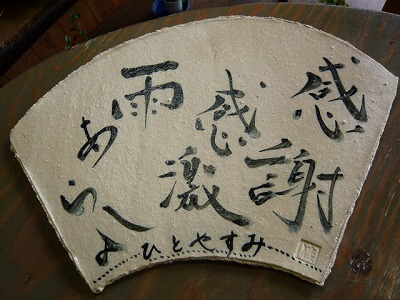 感謝
感激
雨
あらしよ
ひとやすみ